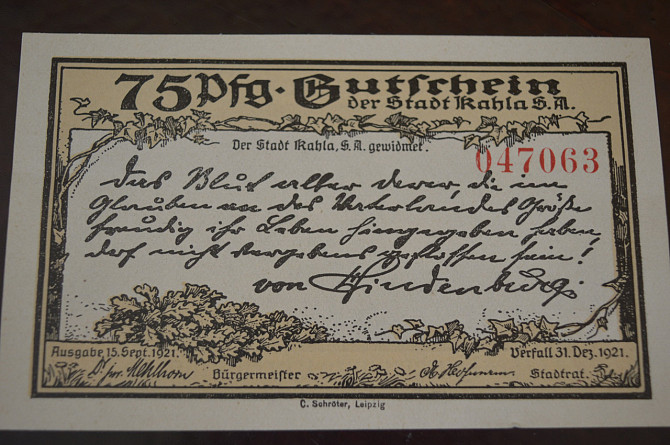 75 Pfg. Gutschein
der Stadt Kahla S.A.
Der Stadt Kahla, S.A. gewidmet.
047063
Das Blut aller derer, die im
Glauben an des Vaterlandes Größe
freudig ihr Leben hingegeben haben,
darf nicht vergebens geflossen sein!
von Hindenburg.
Ausgabe 15. Sept. 1921. Verfall 31. Dez. 1921.
Bürgermeister Stadtrat.
C. Schröter, Leipzig